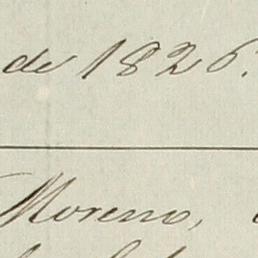 de 1826.
Moreno,